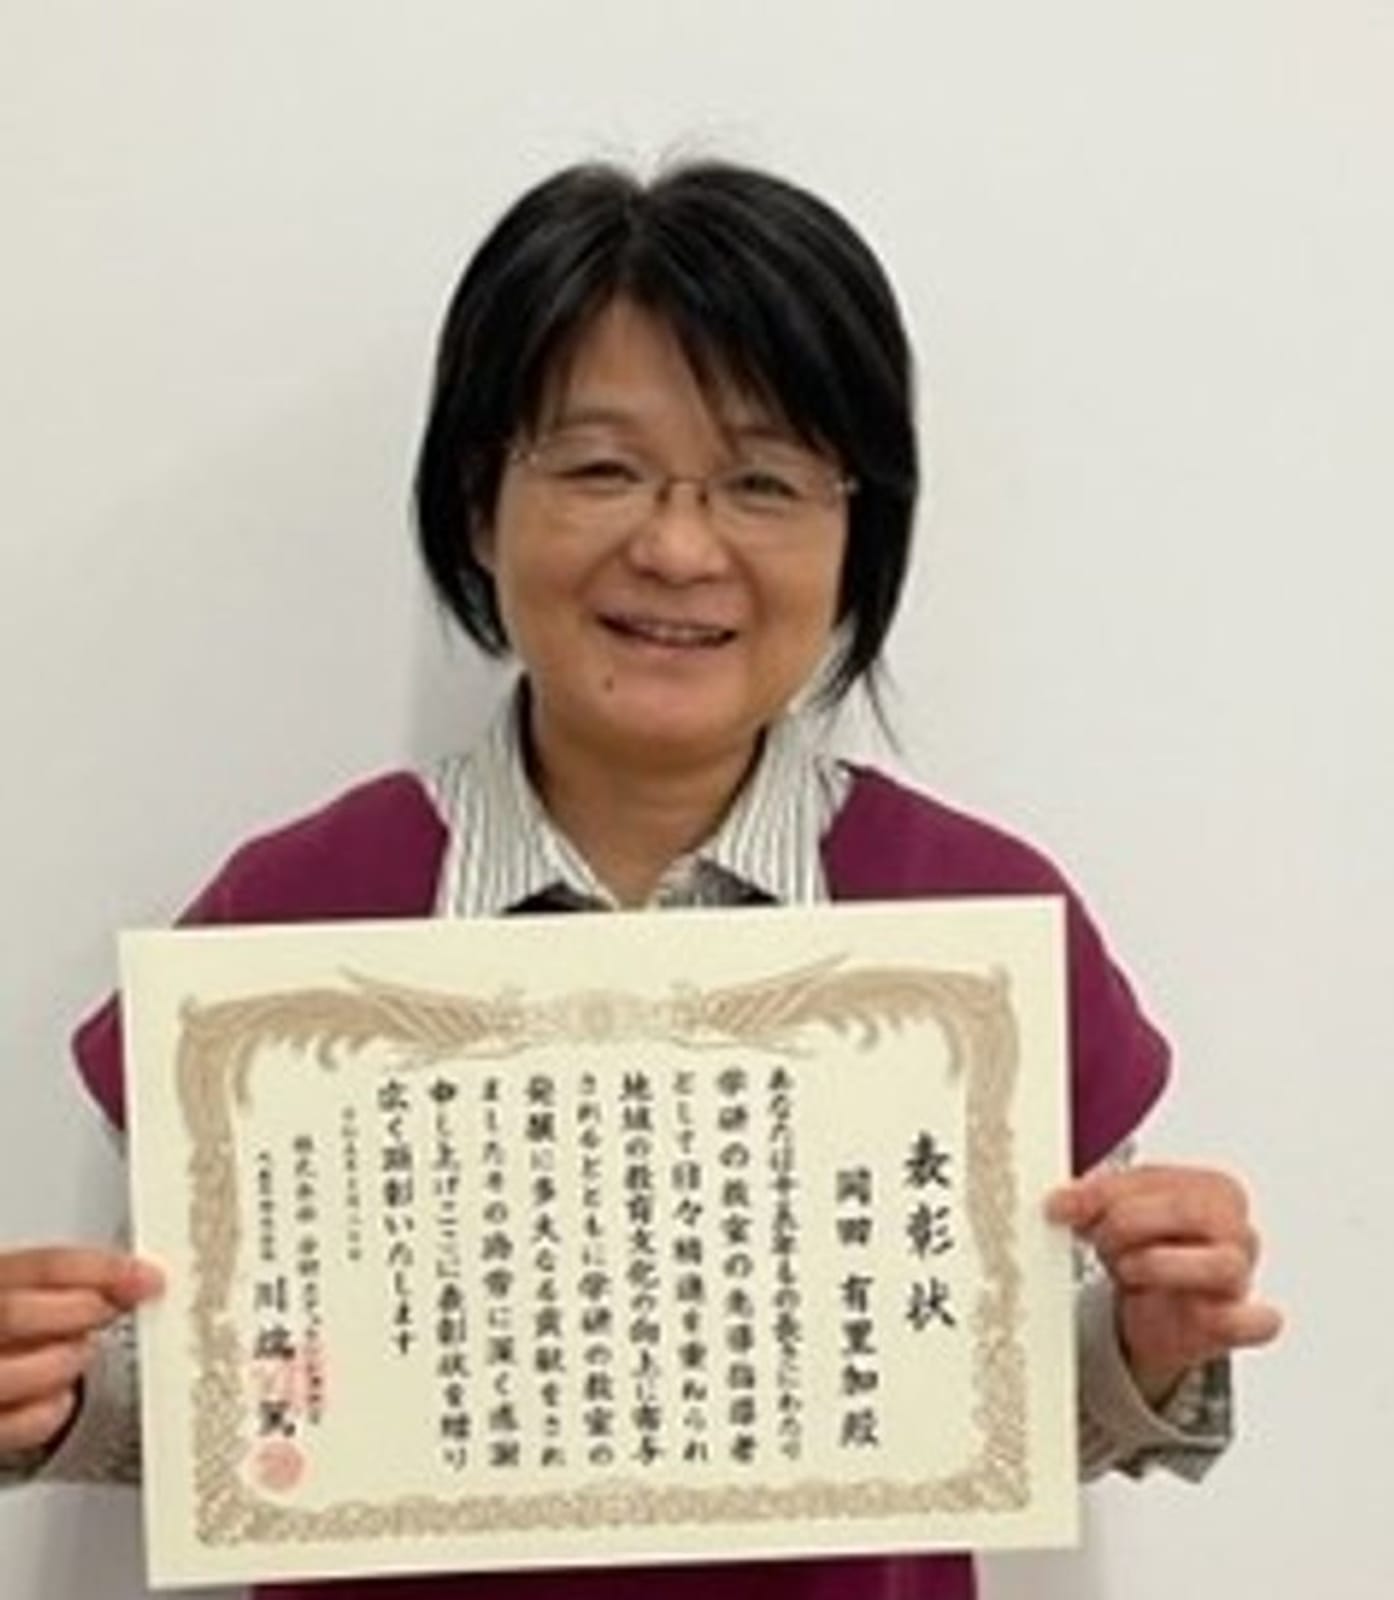 表彰状
岡田 有里加 殿
あなたは十五年もの長きにわたり
学研の教室の先導指導者
として日々精進を重ねられ
地域の教育文化の向上に寄与
されるとともに学研の教室の
発展に多大なる貢献をされ
ましたその功労に深く感謝
申し上げここに表彰状を贈り
広く顕彰いたします
株式会社 学研
川端 篤